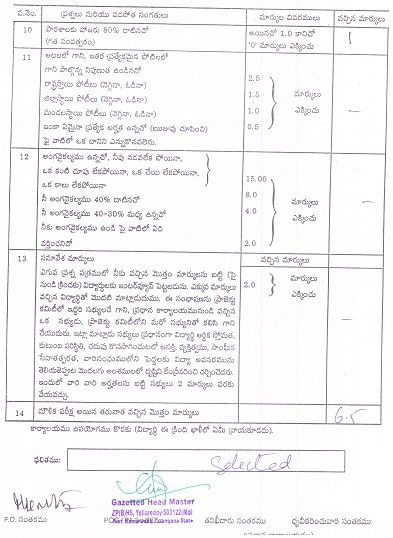 వ.నెం. ప్రశ్నలు మరియు పడవోత సంగతులు మార్కుల వివరములు వచ్చిన మార్కులు
10 పాఠశాలకు హాజరు 80% దాటినచో అయినచో 1.0 కానిచో 1
(గత సంవత్సరం) '0' మార్కులు ఎక్కించు
11 ఆటలలో గాని, ఇతర ప్రత్యేకమైన పోటీలలో
గాని పాల్గొన్న నిపుణుత ఉండినచో
రాష్ట్రస్థాయి పోటీలు (నెగ్గినా, ఓడినా) 2.5
జిల్లాస్థాయి పోటీలు (నెగ్గినా, ఓడినా) 1.5 మార్కులు
మండలస్థాయి పోటీలు (నెగ్గినా, ఓడినా) 1.0 ఎక్కించు —
ఇంకా ఏమైనా ప్రత్యేక అర్హత ఉన్నచో (ఋజువు చూపించి) 0.5
పై వాటిలో ఒక దానిని ఎన్నుకొనవలెను.
12 అంగవైకల్యము ఉన్నచో, నీవు నడవలేక పోయినా,
ఒక కంటి చూపు లేకపోయినా, ఒక చేయి లేకపోయినా, 15.00
ఒక కాలు లేకపోయినా 8.0
నీ అంగవైకల్యము 40% దాటినచో 4.0 మార్కులు
నీ అంగవైకల్యము 40-30% మధ్య ఉన్నచో ఎక్కించు —
నీకు అంగవైకల్యము ఉండి పై వాటిలో ఏది
వర్తించనిచో 2.0
13 సమావేశ మార్కులు వచ్చిన మార్కులు
ఎగువ ప్రశ్న పత్రములో నీకు వచ్చిన మొత్తం మార్కులను బట్టి (పై 2.0 మార్కులు
నుండి క్రిందకు) విద్యార్థులకు ఇంటర్వ్యూవ్ పెట్టబడును. ఎక్కువ మార్కులు ఎక్కించు —
వచ్చిన విద్యార్థితో మొదటి మాట్లాడుదుము. ఈ సంభాషణను ప్రాజెక్టు
కమిటీలో ఇద్దరి సభ్యులచే గాని, ప్రధాన కార్యాలయమునుండి వచ్చిన
ఒక సభ్యుడు, ప్రాజెక్టు కమిటీలోని మరో సభ్యునితో కలిసి గాని
చేయుదురు. ఇట్లా మాట్లాడు సభ్యులు ప్రధానంగా విద్యార్థి ఆర్థిక స్తోమత,
కుటుంబ పరిస్థితి, చదువు కొనసాగించుటలో ఆసక్తి, వ్యక్తిత్వము, సాంఘీక
సేవాతత్పరత, వారిసంఘములోని పెద్దలకు విద్యా అవసరమును
తెలియజెప్పుట మొదలగు అంశములలో దృష్టిని కేంద్రీకరించి చర్చించెదరు.
ఇందులో వారి వారి అర్హతలను బట్టి సభ్యులు 2 మార్కులు వరకు
వేయవచ్చు.
14 మౌళిక పరీక్ష అయిన తరువాత వచ్చిన మొత్తం మార్కులు 6.5
కార్యాలయము ఉపయోగము కొరకు (విద్యార్థి ఈ క్రింది ఖాళీలో ఏమీ వ్రాయకూడదు).
ఫలితము: Selected
Gazetted Head Master
ZP(B)HS, Yellareddy-503122(Md)
P.D. సంతకము తనిఖీదారు సంతకము ధృవీకరించువారి సంతకము